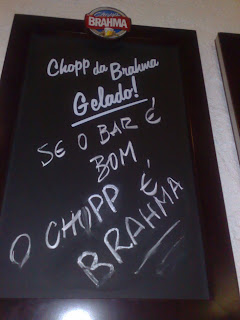 BRAHMA
Chopp da Brahma
Gelado!
SE O BAR É
BOM,
O CHOPP É
BRAHMA